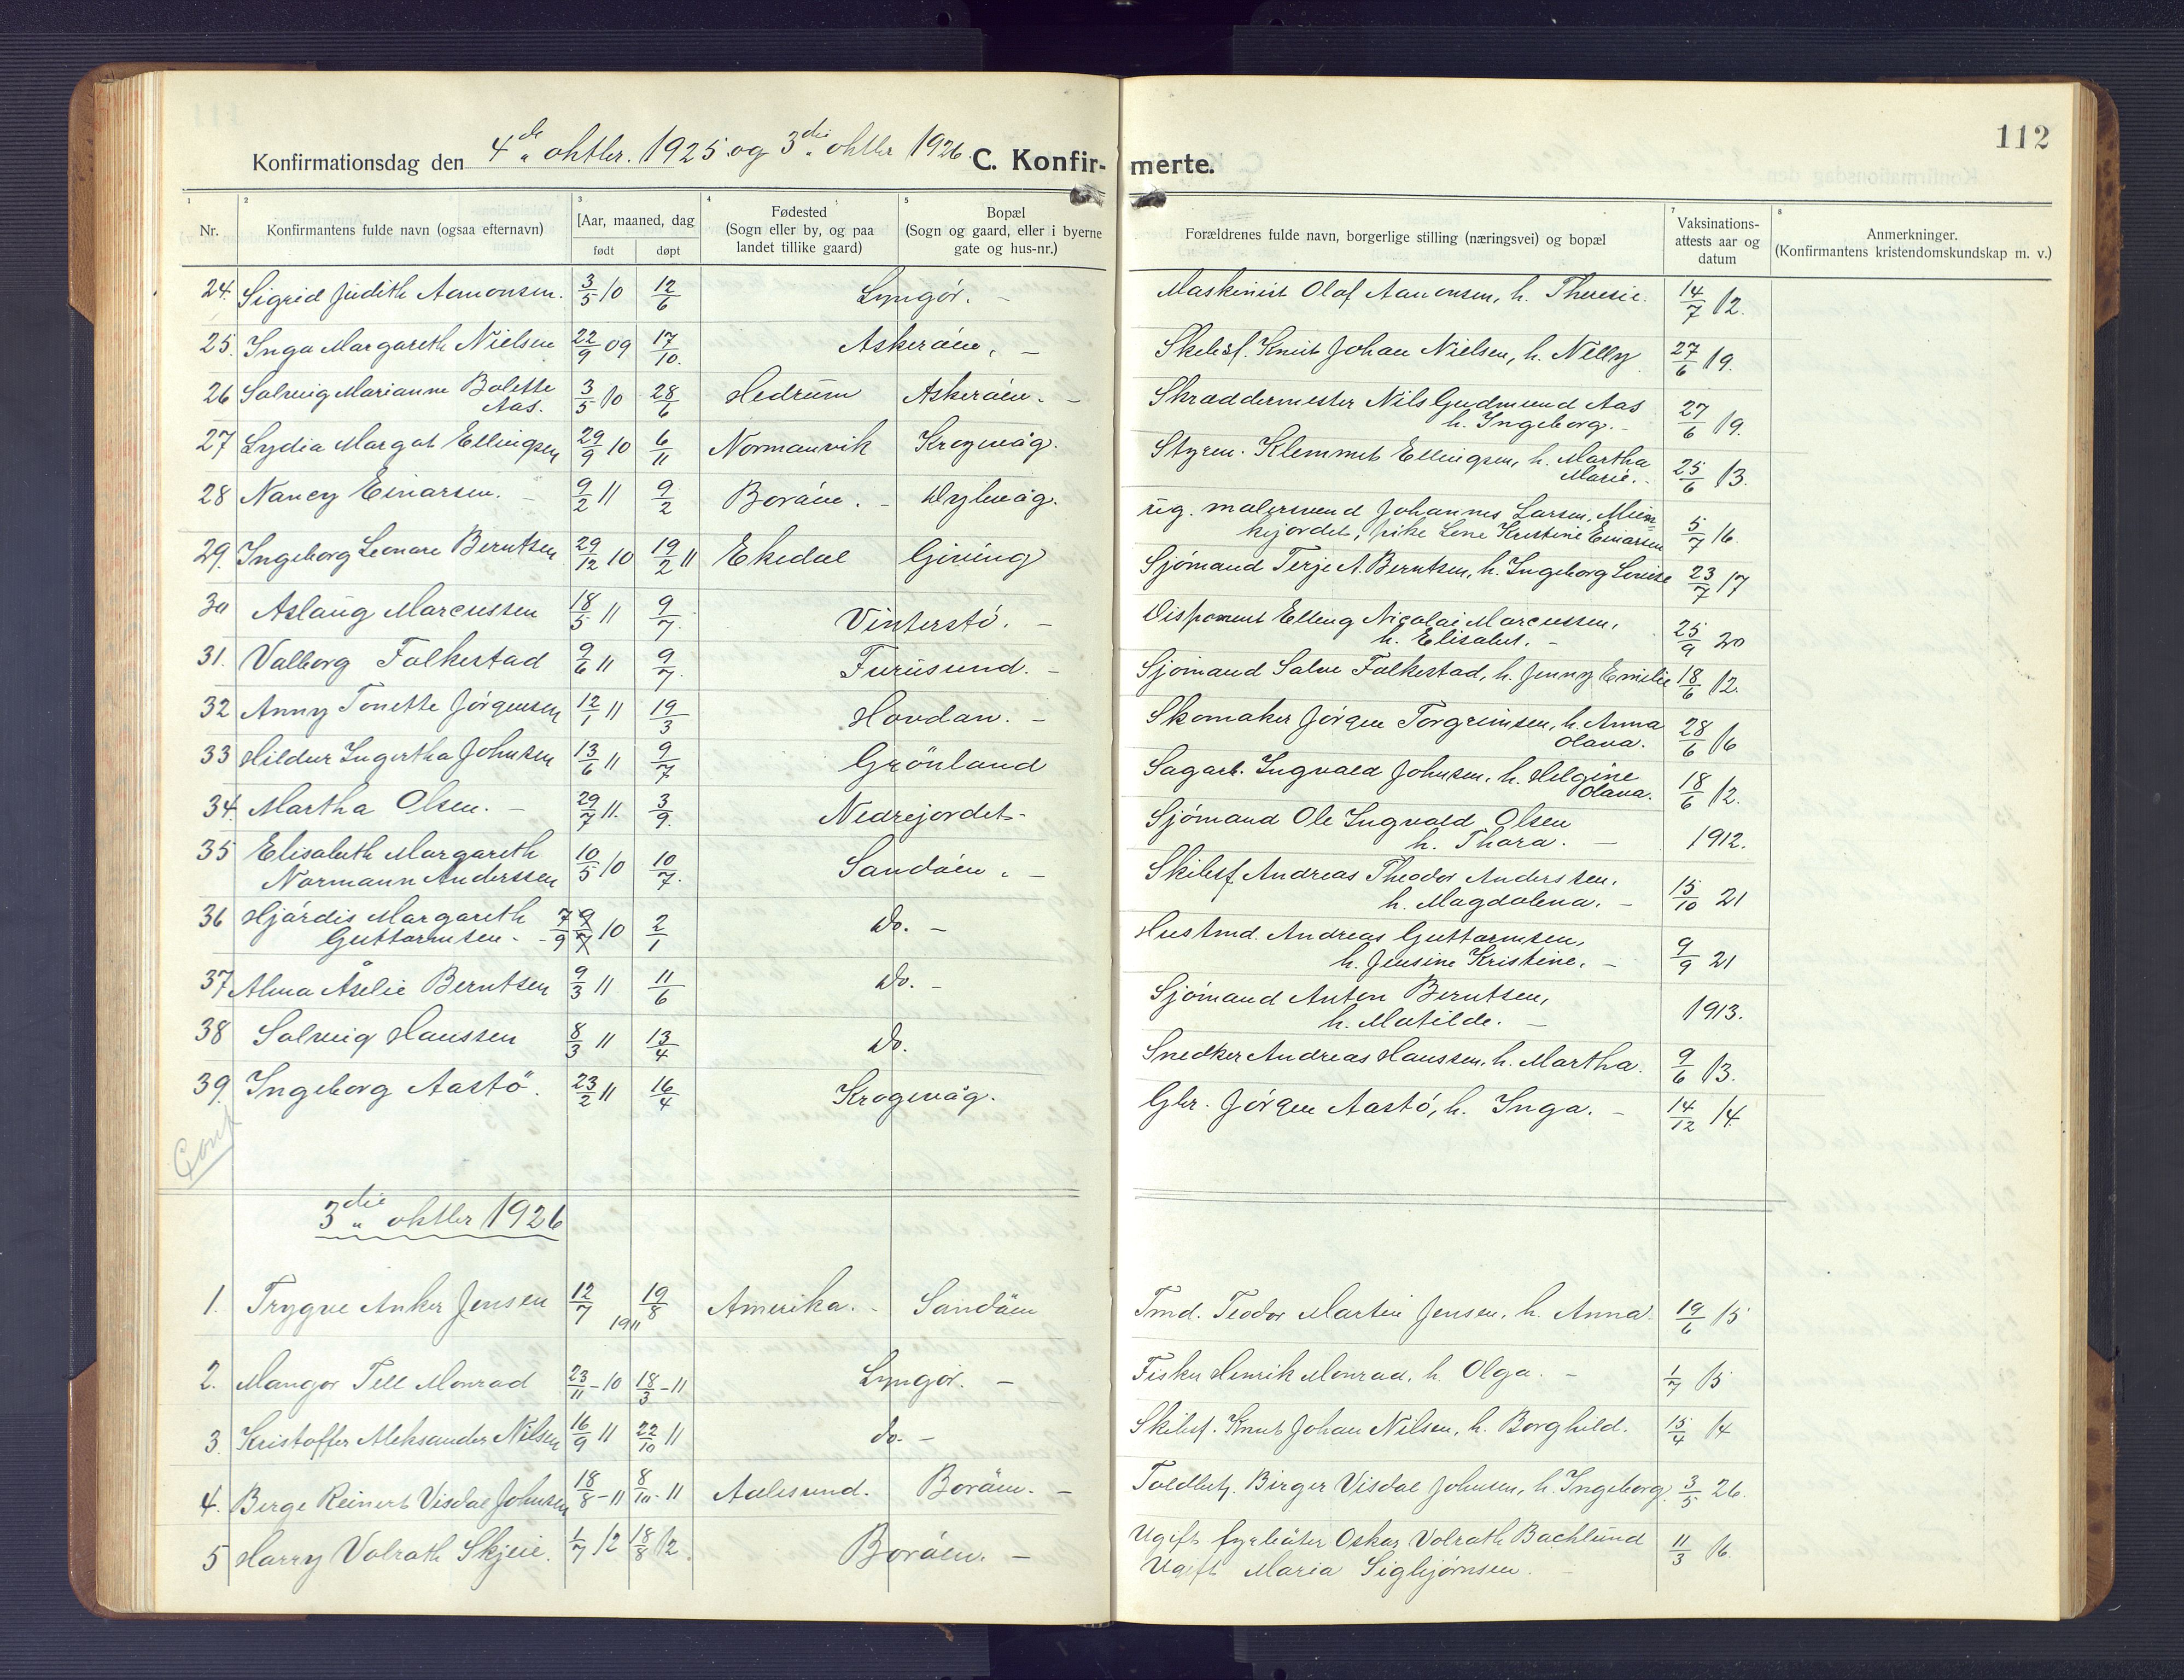 112
Konfirmationsdag den 4de oktbr. 1925 og 3die oktbr 1926. C. Konfir- merte.
1 2 3 4 5 7 8
Nr. Konfirmantens fulde navn (ogsaa efternavn) [Aar, maaned, dag født døpt Fødested (Sogn eller by, og paa landet tillike gaard) Bopæl (Sogn og gaard, eller i byerne gate og hus-nr.) Forældrenes fulde navn, borgerlige stilling (næringsvei) og bopæl Vaksinations-attests aar og datum Anmerkninger. (Konfirmantens kristendomskundskap m. v.)
24. Sigrid Judith Aanonsen. 3/5 10 12/6 Lyngör. - Maskinist Olaf Aanonsen, h. Theresie. 14/7 12.
25. Inga Margareth Nielsen 22/9 09 17/10. Askeröen, - Skibsf. Knut Johan Nielsen, h. Nelly 27/6 19.
26 Solveig Marianne Bolette Aas. 3/5 10 28/6 Hedrum Askeröen. - Skræddermester Nils Gudmund Aas h. Ingeborg. - 27/6 19.
27 Lydia Margot Ellingsen 29/9 10 6/11 Normanvik Krogevåg. Styrm. Klemmet Ellingsen, h. Martha Marie. - 25/6 13.
28 Nancy Einarsen. - 9/2 11 9/2 Boröen. - Dybvåg. ug. malersvend Johannes Larsen, kjordet, pike Lene Kristine Einarsen 5/7 16.
29. Ingeborg Leonore Berntsen 29/12 10 19/2 11 Ekedal Giving Sjömand Terje A. Berntsen, h. Ingeborg Louise 23/7 17
30 Aslaug Marcussen 18/5 11 9/7. Vinterstö. - Disponent Elling Nicolai Marcussen, h. Elisabet. - 25/9 20
31. Valborg Folkestad 9/6 11 9/7. Furusund. - Sjömand Salve Folkestad, h. Jenny Emilie 18/6 12.
32 Anny Tonette Jörgensen 12/1 11 19/3 Hovdan. - Skomaker Jörgen Torgrimsen, h. Anna Olava. 28/6 16
33 Hildur Ingertha Johnsen 13/6 11 9/7 Grönland Sagarb. Ingvald Johnsen, h. Helgine Olava. 18/6 12.
34. Martha Olsen. - 29/7 11. 3/9. Nedrejordet. Sjömand Ole Ingvald Olsen h. Thora. - 1912.
35 Elisabeth Margareth Normann Anderssen 10/5 10 10/7. Sandöen. - Skibsf. Andreas Theodor Anderssen, h. Magdalena. - 15/10 21
36 Hjördis Margareth Guttormsen. - 7/9 9/7 10 2/1 Do. - Hustmd. Andreas Guttormsen, h. Jensine Kristine. - 9/9 21
37 Alma Åselie Berntsen 9/3 11 11/6 Do. - Sjömand Anton Berntsen, h. Matilde. - 1913.
38 Solveig Hanssen 8/3 11 13/4 Do. Snedker Andreas Hanssen, h. Martha. 9/6 13.
39. Ingeborg Aastö. 23/2 11 16/4 Krogevåg. Gbr. Jörgen Aastö, h. Inga. - 14/12 14.
Conf
3die oktbr 1926
1. Trygve Anker Jensen 12/7 19/8 1911 Amerika. - Sandöen Tmd. Teodor Martin Jensen, h. Anna 19/6 15
2. Mangor Tell Monrad 23/11-10 18/3-11 Lyngör. - Fisker Henrik Monrad, h. Olga. - 1/7 15
3. Kristoffer Aleksander Nilsen 16/9 11 22/10 11 do. - Skibsf. Knut Johan Nilsen, h. Borghild. 15/4 14
4. Berge Reinert Visdal Johnsen 18/8-11 8/10-11 Aalesund. Boröen. - Toldbetj. Birger Visdal Johnsen, h. Ingeborg. 3/5 26.
5 Harry Volrath Skjeie. 1/7 12 18/8 12. Boröen. - Ugift fyrböter Oskar Volrath Bachlund
Ugift Maria Sigbjörnsen. - 11/3 16.